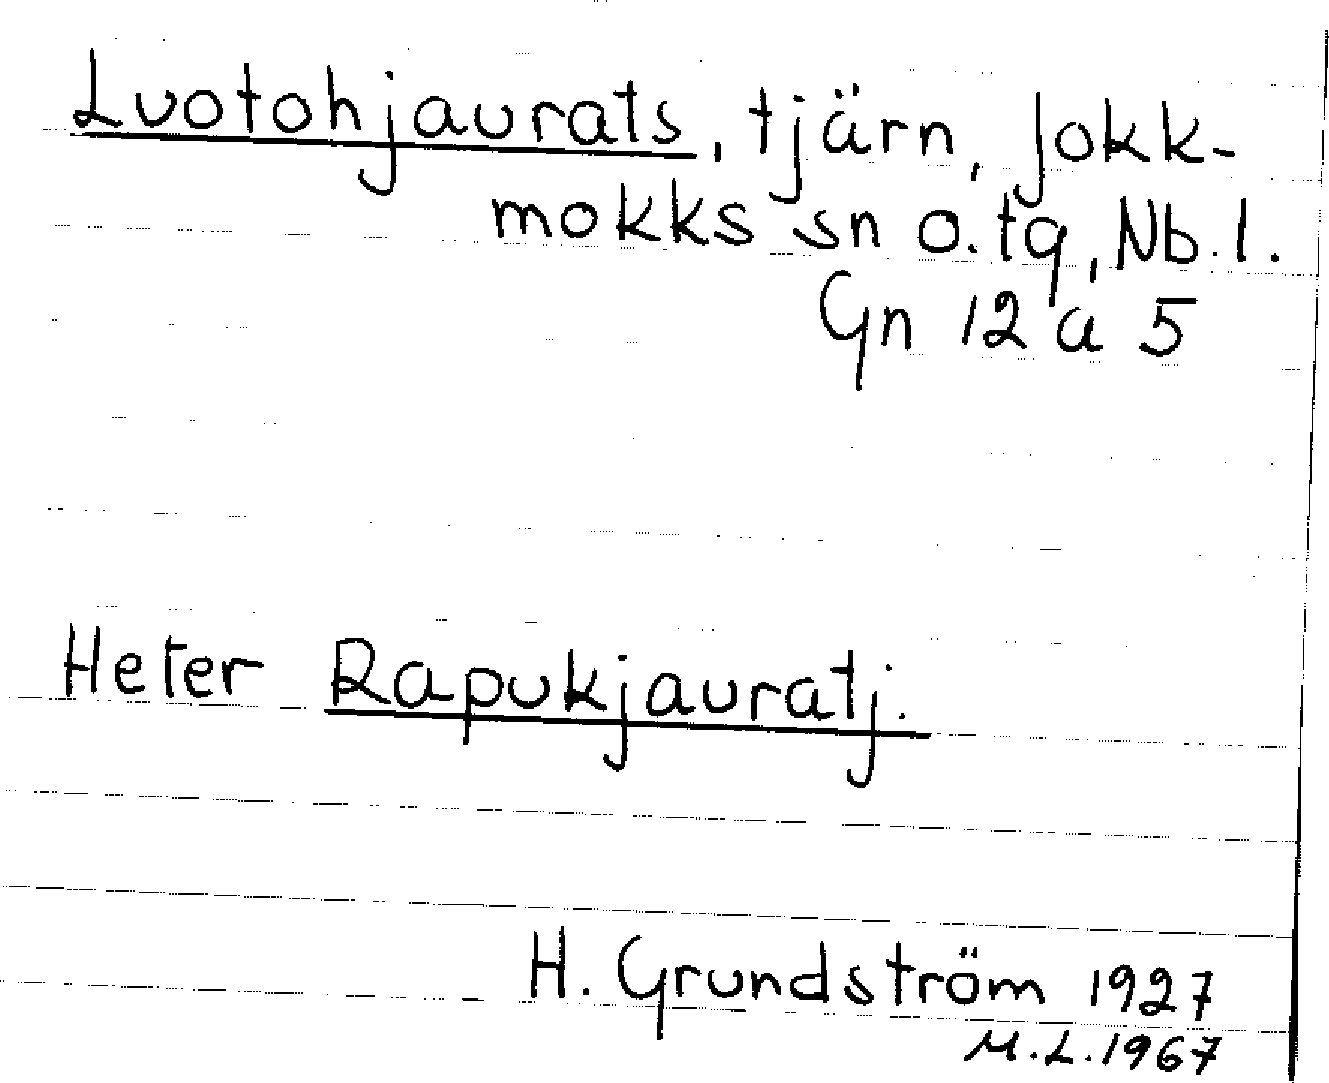 Luotohjaurats, tjärn, Jokk-
mokks sn o. tg, Nb. l.
Gn 12 a 5
Heter Rapukjauratj.
H. Grundström 1927
M.L. 1967